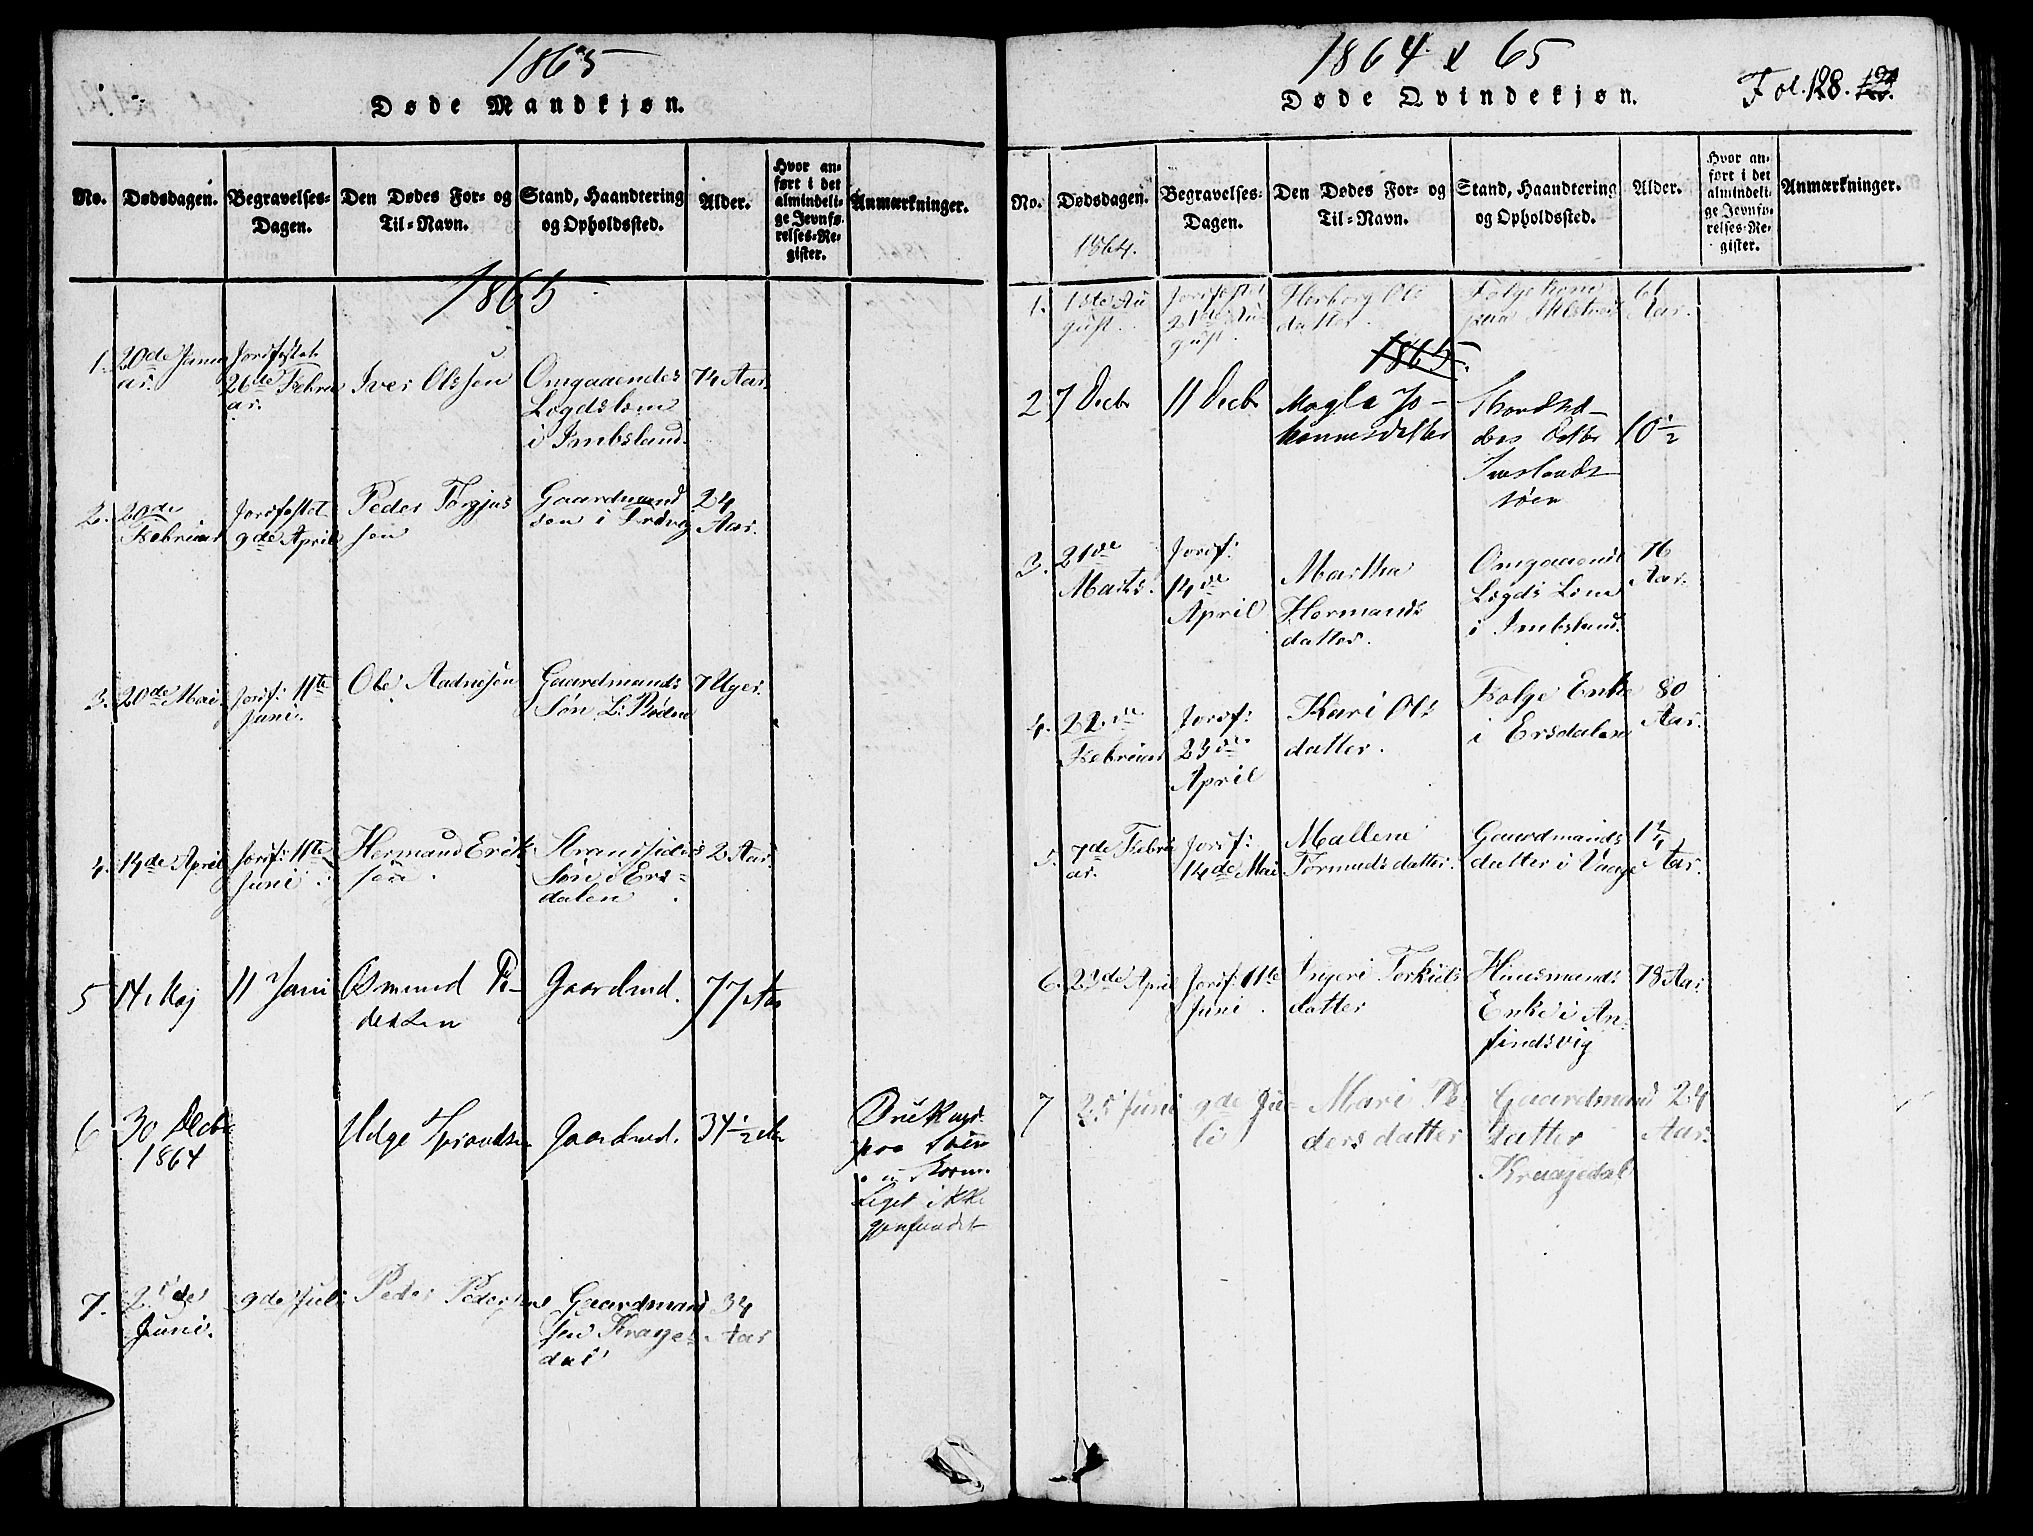 1865
Døde Mandkjøn.
No.
Dødsdagen.
Begravelses-
Dagen.
Den Dødes For- og
Til-Navn.
Stand, Haandtering
og Opholdssted.
Alder.
Hvor an-
ført i det
almindeli-
ge Jevnfø-
relses-Re-
gister.
Anmærkninger.
1865
1. 20de Janu
ar.
Jordfestet
26de Febru
ar.
Iver Olssen
Omgaaendes
Lægdslem
i Imbsland.
74 Aar.
2. 20de
Februar
Jordfestet
9de April
Peder Torgjus
sen
Gaardmand
søn i
24
Aar.
3. 20de Mai
Jordf: 11te
Juni.
Ole Aadnesen
Gaardmands
Søn L: Røden
7 Uger.
4. 14de April
Jordf: 11te
Juni.
Hermand Erik
sen.
Strandsiders
Søn i Ers-
dalen.
2 Aar.
5 14. Maj
11 Juni
Osmund Pe-
dersen
Gaardmd.
77 Aar
6 30 Decbr
1864
Helge
Gaardmd.
34 1/2 Aar
Liget ikke
gjenfundet
7. 25de
Juni.
9de Juli
Peder Pedersen
Gaardmand
søn Krage-
dal
34
Aar
1864 & 65
Døde Qvindekjøn.
Fol. 128.
No.
Dødsdagen.
1864.
Begravelses-
Dagen.
Den Dødes For- og
Til-Navn.
Stand, Haandtering
og Opholdssted.
Alder.
Hvor an-
ført i det
almindeli-
ge Jevnfø-
relses-Re-
gister.
Anmærkninger.
1. 1ste Au
gust.
Jordfestet
21de Au
gust.
Herborg Ols
datter.
Følgekone
61
Aar.
1865.
2 7 Decbr
11 Decbr
Magla Jo-
hannesdatter
10 1/2
3. 21de
Marts.
Jordf:
14de
April
Martha
Hermands
datter.
Omgaaende
Lægds Lem
i Imbsland.
76
Aar.
4. 22de
Februar
Jordf:
23de
April
Kari Ols
datter.
Følge Enke
i Ersdalen
80
Aar.
5. 7de Febru
ar.
Jordf:
14de Mai
Mallene
Tormodsdatter.
Gaardmands
datter i Vaage
Aar.
6. 23de April
Jordf: 11te
Juni.
Ingeri Torkils
datter
Huusmands
Enke i An-
findsvig
78 Aar.
7 25 Juni
9de Ju-
li
Mari Pe-
dersdatter
Gaardmand
datter
Kragedal
24
Aar.